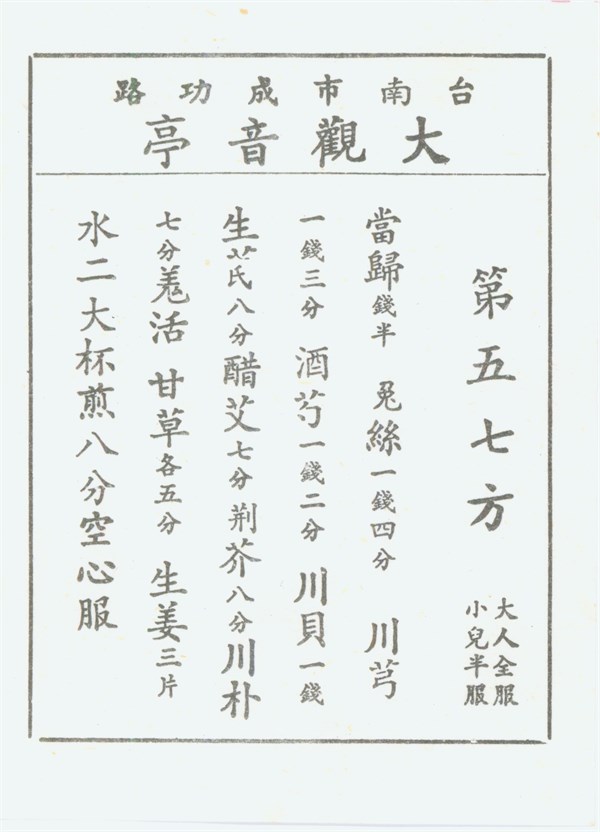 台南市成功路
大觀音亭
第五七方
大人全服
小兒半服
當歸錢半 兎絲一錢四分 川芎
一錢三分 酒芍一錢二分 川貝一錢
生芪八分醋艾七分荆芥八分川朴
七分羗活 甘草各五分 生姜三片
水二大杯煎八分空心服